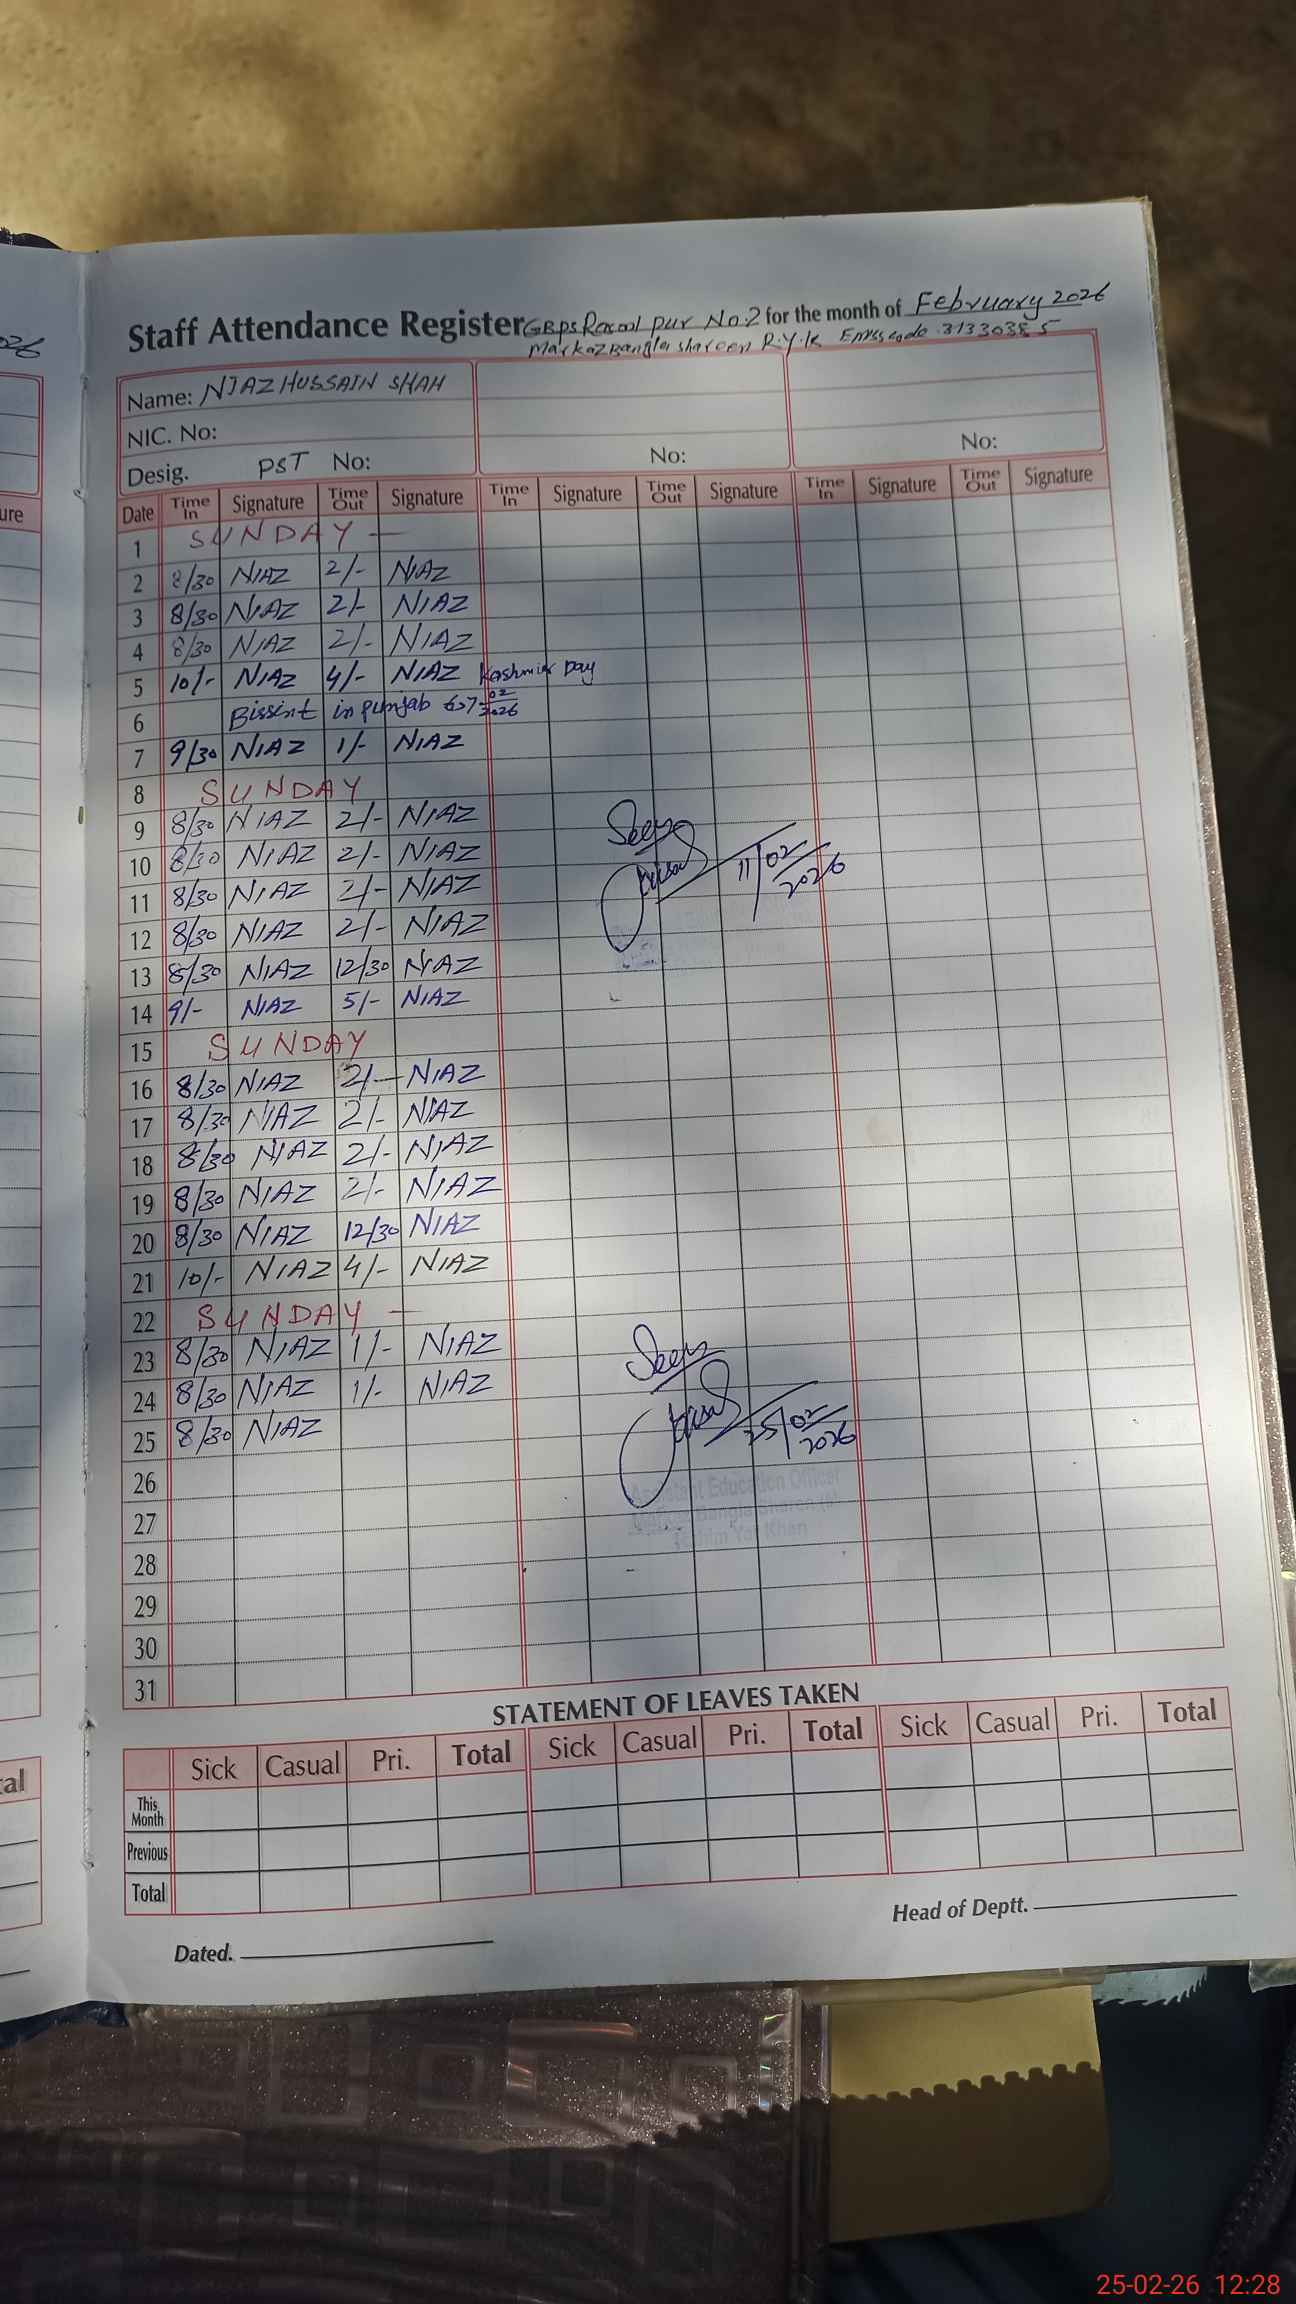 026
Staff Attendance Register GBPS Rasool pur No.2 for the month of February 2026
Markaz Bangla shareen R.Y.K Emiscode 31330385
Name: NIAZ HUSSAIN SHAH
NIC. No:
Desig. PST No: No: No:
ure
Date Time In Signature Time Out Signature Time In Signature Time Out Signature Time In Signature Time Out Signature
1 SUNDAY —
2 8/30 NIAZ 2/- NIAZ
3 8/30 NIAZ 2/- NIAZ
4 8/30 NIAZ 2/- NIAZ
5 10/- NIAZ 4/- NIAZ Kashmir Day
6 in punjab
7 9/30 NIAZ 1/- NIAZ
8 SUNDAY
9 8/30 NIAZ 2/- NIAZ
10 8/30 NIAZ 2/- NIAZ
Seen
11/02/2026
11 8/30 NIAZ 2/- NIAZ
12 8/30 NIAZ 2/- NIAZ
13 8/30 NIAZ 12/30 NIAZ
14 9/- NIAZ 5/- NIAZ
15 SUNDAY
16 8/30 NIAZ 2/- NIAZ
17 8/30 NIAZ 2/- NIAZ
18 8/30 NIAZ 2/- NIAZ
19 8/30 NIAZ 2/- NIAZ
20 8/30 NIAZ 12/30 NIAZ
21 10/- NIAZ 4/- NIAZ
22 SUNDAY —
23 8/30 NIAZ 1/- NIAZ
24 8/30 NIAZ 1/- NIAZ
Seen
25/02/2026
25 8/30 NIAZ
26
Assistant Education Officer
27
Markaz Bangla Shareen
Rahim Yar Khan
28
29
30
31
STATEMENT OF LEAVES TAKEN
Sick Casual Pri. Total Sick Casual Pri. Total Sick Casual Pri. Total
This Month
Previous
Total
tal
Head of Deptt.
Dated.
25-02-26 12:28